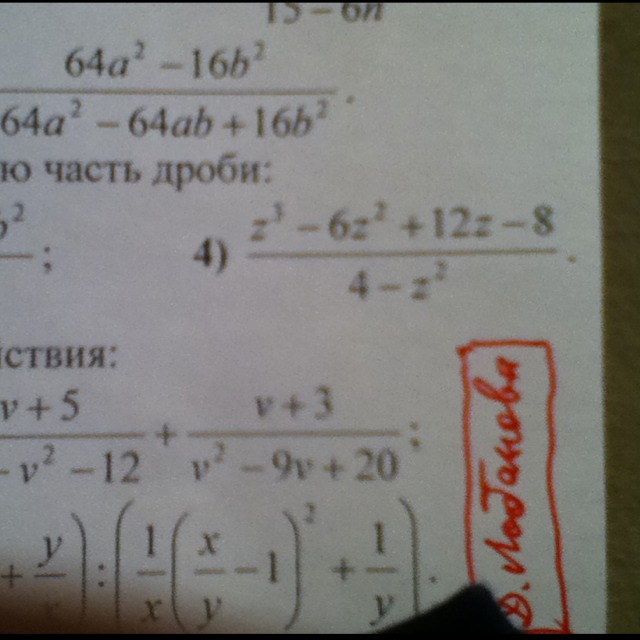 15 − 6n
64a² − 16b²
64a² − 64ab + 16b² .
ю часть дроби:
b² ; 4) z³ − 6z² + 12z − 8
4 − z² .
йствия:
v + 5 + v + 3 ;
− v² − 12 v² − 9v + 20
+ y ) : ( 1/x ( x/y − 1 )² + 1/y ) .